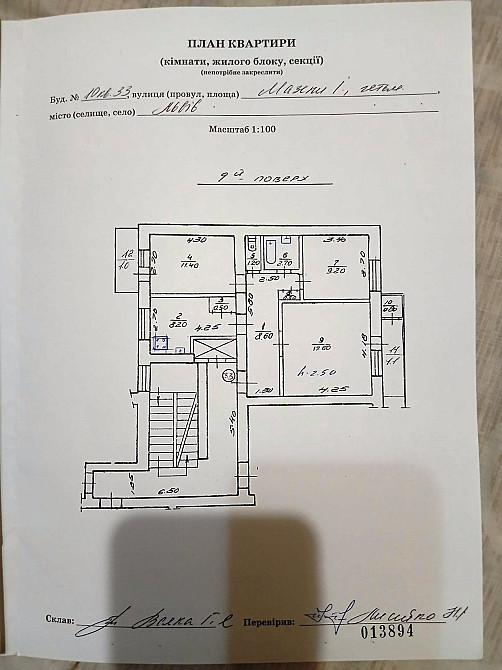 ПЛАН КВАРТИРИ
(кімнати, жилого блоку, секції)
(непотрібне закреслити)
Буд. № 10 кв. 33, вулиця (провул, площа) Мазепи І, гетьм.
місто (селище, село) Львів
Масштаб 1:100
9й поверх
4.30
4
11.40
2.70
12
1.0
5
1.20
6
2.70
3.46
7
9.20
2.70
2.50
3
0.50
2
8.20
4.25
2.70
5.80
1
8.60
9
4.18
10
11
1.1
h-2.50
4.25
1.50
33
5.40
6.50
Склав:
Перевірив:
013894